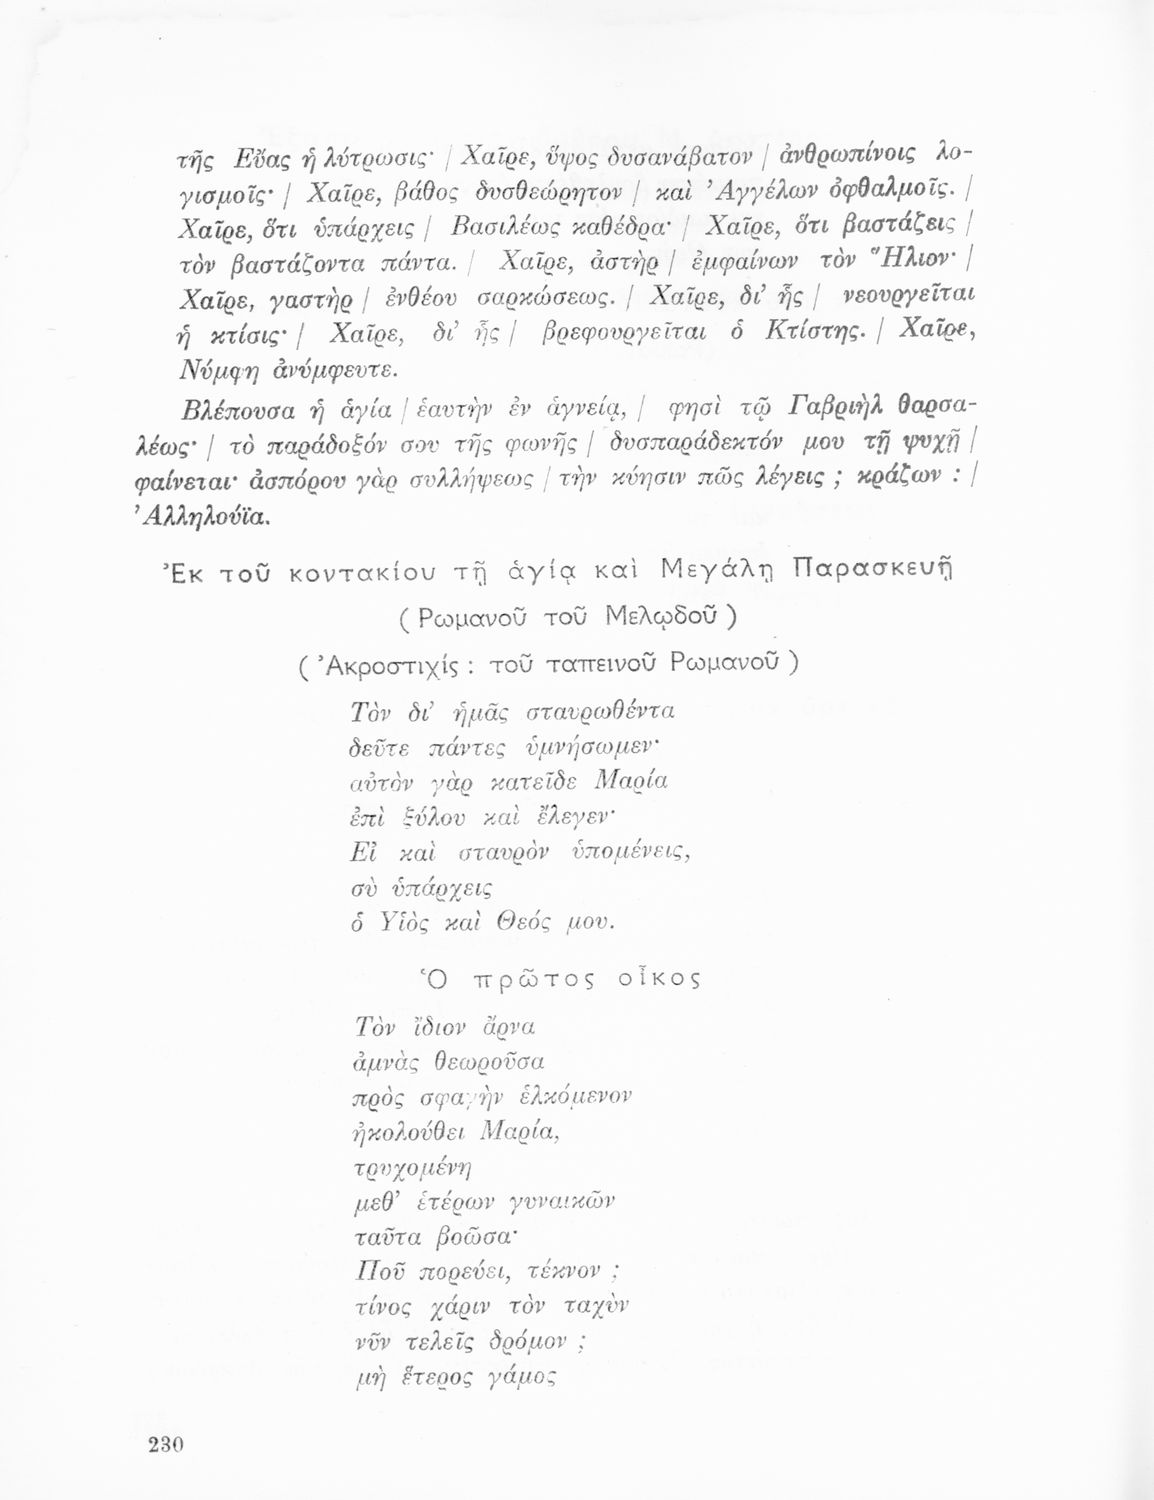 τῆς Εὔας ἡ λύτρωσις· | Χαῖρε, ὕψος δυσανάβατον | ἀνθρωπίνοις λο-
γισμοῖς· | Χαῖρε, βάθος δυσθεώρητον | καὶ Ἀγγέλων ὀφθαλμοῖς. |
Χαῖρε, ὅτι ὑπάρχεις | Βασιλέως καθέδρα· | Χαῖρε, ὅτι βαστάζεις |
τὸν βαστάζοντα πάντα. | Χαῖρε, ἀστὴρ | ἐμφαίνων τὸν Ἥλιον· |
Χαῖρε, γαστὴρ | ἐνθέου σαρκώσεως. | Χαῖρε, δι’ ἧς | νεουργεῖται
ἡ κτίσις· | Χαῖρε, δι’ ἧς | βρεφουργεῖται ὁ Κτίστης. | Χαῖρε,
Νύμφη ἀνύμφευτε.
Βλέπουσα ἡ ἁγία | ἑαυτὴν ἐν ἁγνείᾳ, | φησὶ τῷ Γαβριὴλ θαρσα-
λέως· | τὸ παράδοξόν σου τῆς φωνῆς | δυσπαράδεκτόν μου τῇ ψυχῇ |
φαίνεται· ἀσπόρου γὰρ συλλήψεως | τὴν κύησιν πῶς λέγεις ; κράζων : |
Ἀλληλούϊα.
Ἐκ τοῦ κοντακίου τῇ ἁγίᾳ καὶ Μεγάλῃ Παρασκευῇ
( Ρωμανοῦ τοῦ Μελῳδοῦ )
( Ἀκροστιχίς : τοῦ ταπεινοῦ Ρωμανοῦ )
Τὸν δι’ ἡμᾶς σταυρωθέντα
δεῦτε πάντες ὑμνήσωμεν·
αὐτὸν γὰρ κατεῖδε Μαρία
ἐπὶ ξύλου καὶ ἔλεγεν·
Εἰ καὶ σταυρὸν ὑπομένεις,
σὺ ὑπάρχεις
ὁ Υἱὸς καὶ Θεός μου.
Ὁ πρῶτος οἶκος
Τὸν ἴδιον ἄρνα
ἀμνὰς θεωροῦσα
πρὸς σφαγὴν ἑλκόμενον
ἠκολούθει Μαρία,
τρυχομένη
μεθ’ ἑτέρων γυναικῶν
ταῦτα βοῶσα·
Ποῦ πορεύει, τέκνον ;
τίνος χάριν τὸν ταχὺν
νῦν τελεῖς δρόμον ;
μὴ ἕτερος γάμος
230